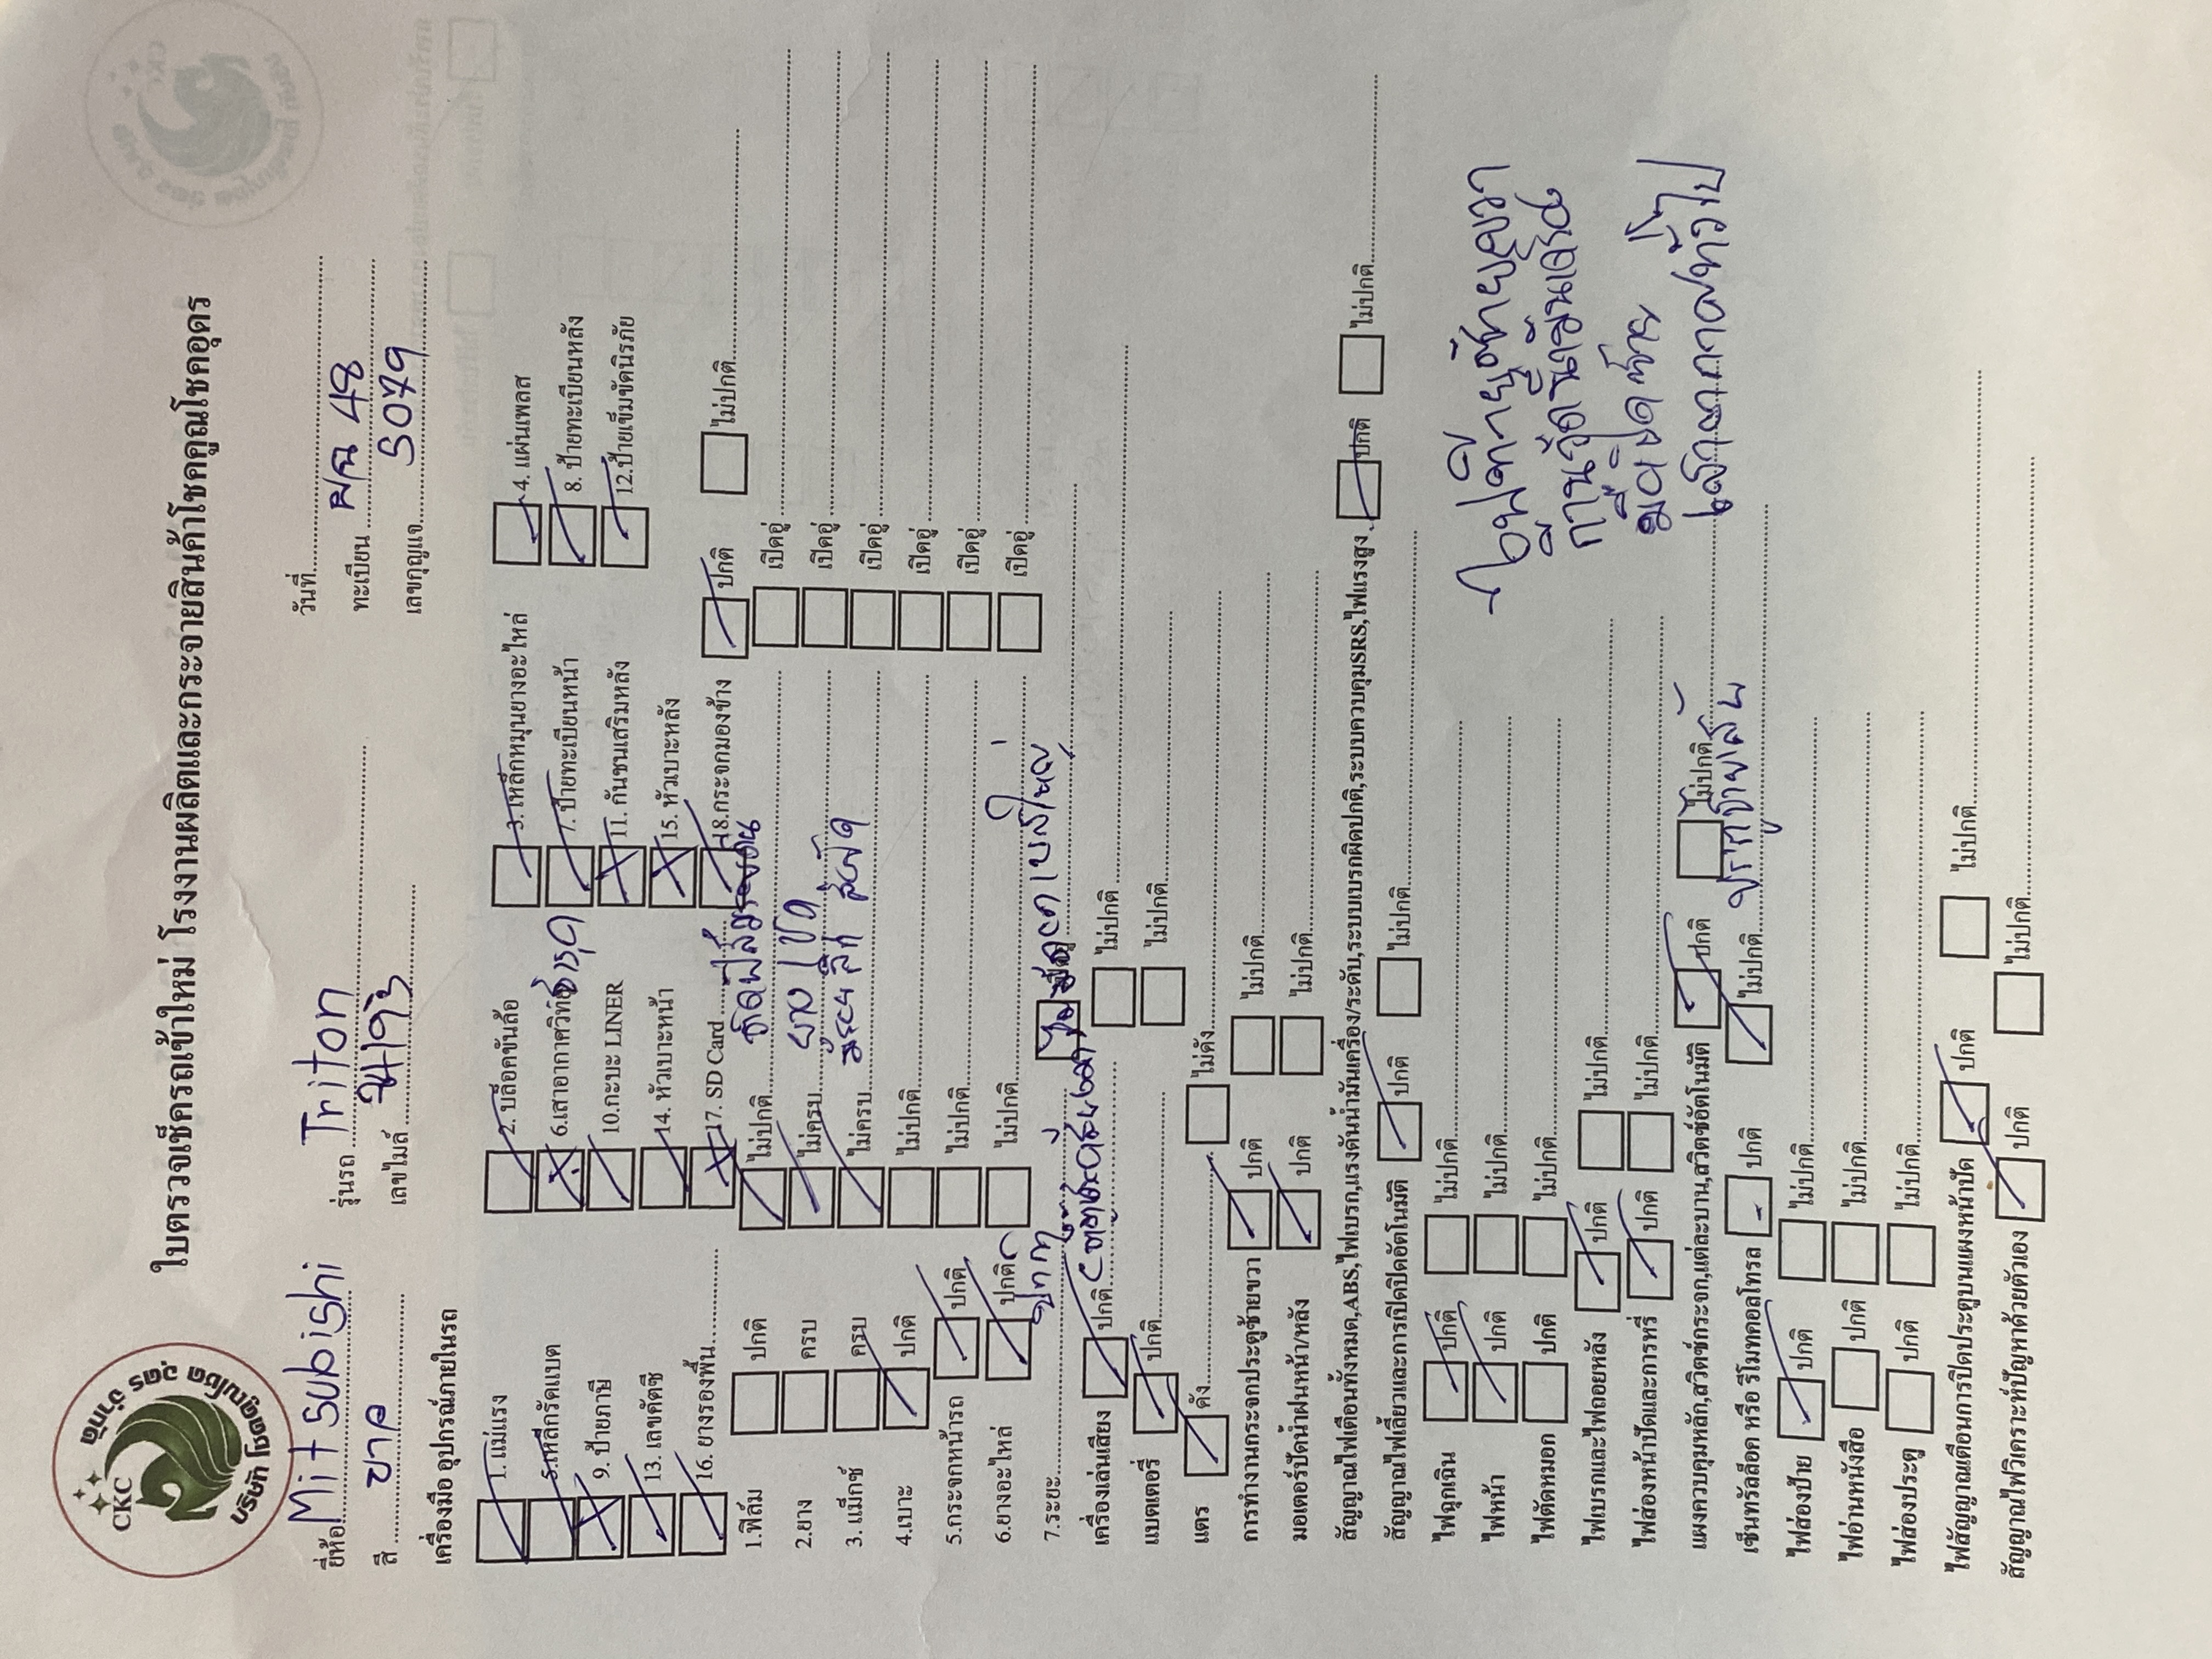 CKC
บริษัท โชคคูณโชค อุดร จำกัด
ใบตรวจเช็ครถเข้าใหม่ โรงงานผลิตและกระจายสินค้าโชคคูณโชคอุดร
ยี่ห้อ Mitsubishi รุ่นรถ Triton วันที่
สี ขาว เลขไมล์ ทะเบียน 48
เลขกุญแจ 5079
เครื่องมือ อุปกรณ์ภายในรถ
1. แม่แรง 2. บล็อคขันล้อ 3. เหล็กหมุนยางอะไหล่ 4. แผ่นเพลส
5.เหล็กรัคแบต 6.เสาอากาศวิทยุ ชำรุด 7. ป้ายทะเบียนหน้า 8. ป้ายทะเบียนหลัง
9. ป้ายภาษี 10.กะบะ LINER 11. กันชนเสริมหลัง 12.ป้ายเข็มขัดนิรภัย
13. เลขคัตซี 14. หัวเบาะหน้า 15. หัวเบาะหลัง
16. ยางรองพื้น 17. SD Card 18.กระจกมองข้าง ปกติ ไม่ปกติ
1.ฟิล์ม ปกติ ไม่ปกติ เปิดอู่
2.ยาง ครบ ไม่ครบ เปิดอู่
3. แม็กซ์ ครบ ไม่ครบ เปิดอู่
4.เบาะ ปกติ ไม่ปกติ เปิดอู่
5.กระจกหน้ารถ ปกติ ไม่ปกติ เปิดอู่
6.ยางอะไหล่ ปกติ ไม่ปกติ เปิดอู่
7.ระยะ
เครื่องเล่นเสียง ปกติ ไม่ปกติ
แบตเตอรี่ ปกติ ไม่ปกติ
แตร ดัง ไม่ดัง
การทำงานกระจกประตูซ้ายขวา ปกติ ไม่ปกติ
มอเตอร์ปัดน้ำฝนหน้า/หลัง ปกติ ไม่ปกติ
สัญญาณไฟเตือนทั้งหมด,ABS,ไฟเบรก,แรงดันน้ำมันเครื่อง/ระดับ,ระบบเบรกผิดปกติ,ระบบควบคุมSRS,ไฟแรงสูง ปกติ ไม่ปกติ
สัญญาณไฟเลี้ยวและการเปิดปิดอัตโนมัติ ปกติ ไม่ปกติ
ไฟฉุกเฉิน ปกติ ไม่ปกติ
ไฟหน้า ปกติ ไม่ปกติ
ไฟตัดหมอก ปกติ ไม่ปกติ
ไฟเบรกและไฟถอยหลัง ปกติ ไม่ปกติ
ไฟส่องหน้าปัดและการหรี่ ปกติ ไม่ปกติ
แผงควบคุมหลัก,สวิตช์กระจก,แต่ละบาน,สวิตช์อัตโนมัติ ปกติ ไม่ปกติ
เซ็นทรัลล็อค หรือ รีโมทคอลโทรล ปกติ ไม่ปกติ
ไฟส่องป้าย ปกติ ไม่ปกติ
ไฟอ่านหนังสือ ปกติ ไม่ปกติ
ไฟส่องประตู ปกติ ไม่ปกติ
ไฟสัญญาณเตือนการปิดประตูบนแผงหน้าปัด ปกติ ไม่ปกติ
สัญญาณไฟวิเคราะห์ปัญหาด้วยตัวเอง ปกติ ไม่ปกติ